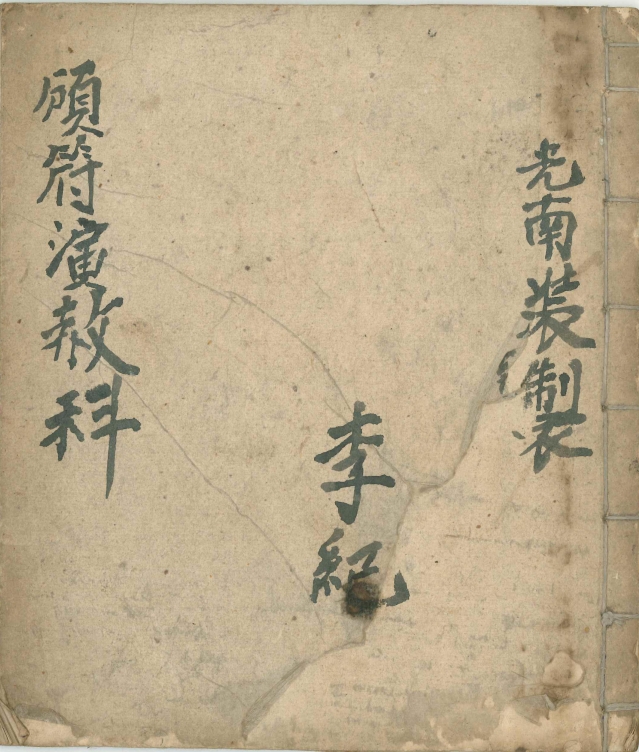 光南装製
李紀
頒符演赦科